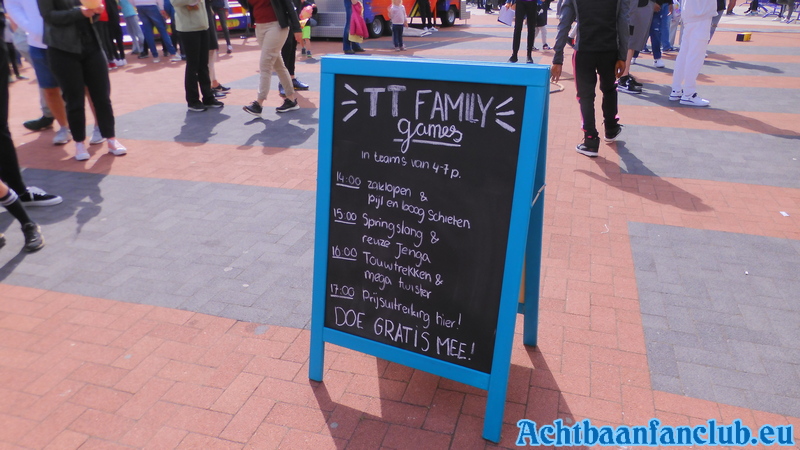 TT FAMILY
games
in teams van 4-7 p.
14:00 zaklopen &
pijl en boog schieten
15:00 Springslang &
reuze Jenga
16:00 Touwtrekken &
mega twister
17:00 Prijsuitreiking hier!
DOE GRATIS MEE!
Achtbaanfanclub.eu